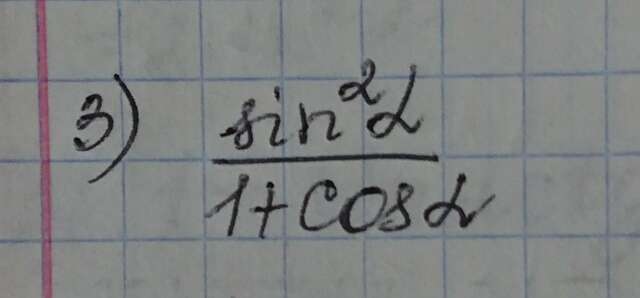 3) sin²α
1+cosα